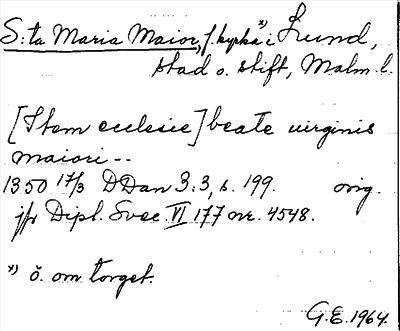 S:ta Maria Maior, f. kyrka *) i Lund,
stad o. stift, Malm. l.
[Item ecclesie] beate uirginis
maiori --
1350 17/3 DDan 3:3, s. 199. orig.
jfr Dipl. Svec VI 177 nr. 4548.
*) ö. om torget.
G.E. 1964.